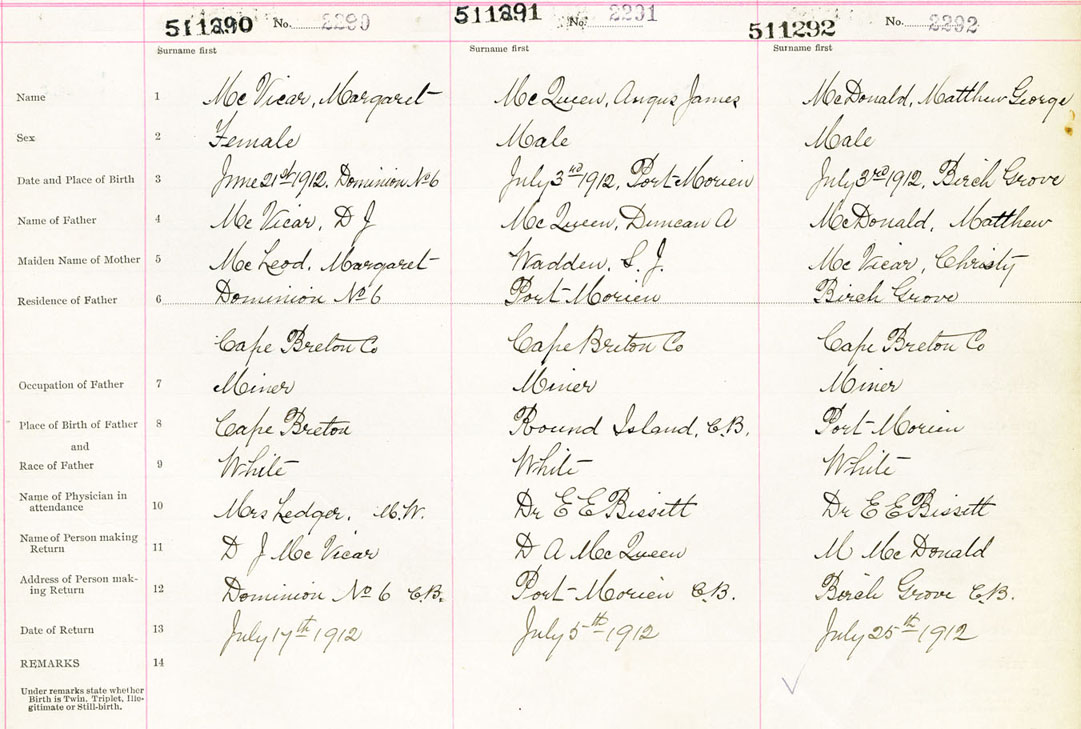 511290 No. 2290 511291 No. 2291 511292 No. 2292
Surname first Surname first Surname first
Name 1 McVicar, Margaret McQueen, Angus James McDonald, Matthew George
Sex 2 Female Male Male
Date and Place of Birth 3 June 21st 1912. Dominion No 6 July 3rd 1912, Port-Morien July 3rd 1912, Birch Grove
Name of Father 4 McVicar, D J McQueen, Duncan A McDonald, Matthew
Maiden Name of Mother 5 McLeod, Margaret Wadden, S. J. McVicar, Christy
Residence of Father 6 Dominion No 6 Port-Morien Birch Grove
Cape Breton Co Cape Briton Co Cape Breton Co
Occupation of Father 7 Miner Miner Miner
Place of Birth of Father 8 Cape Breton Round Island, C.B. Port-Morien
and
Race of Father 9 White White White
Name of Physician in
attendance 10 Mrs Ledger, M.W. Dr E E Bissett Dr E E Bissett
Name of Person making
Return 11 D J McVicar D A McQueen M McDonald
Address of Person mak-
ing Return 12 Dominion No 6 C.B. Port-Morien C.B. Birch Grove C.B.
Date of Return 13 July 17th 1912 July 5th 1912 July 25th 1912
REMARKS 14
Under remarks state whether
Birth is Twin, Triplet, Ille-
gitimate or Still-birth.